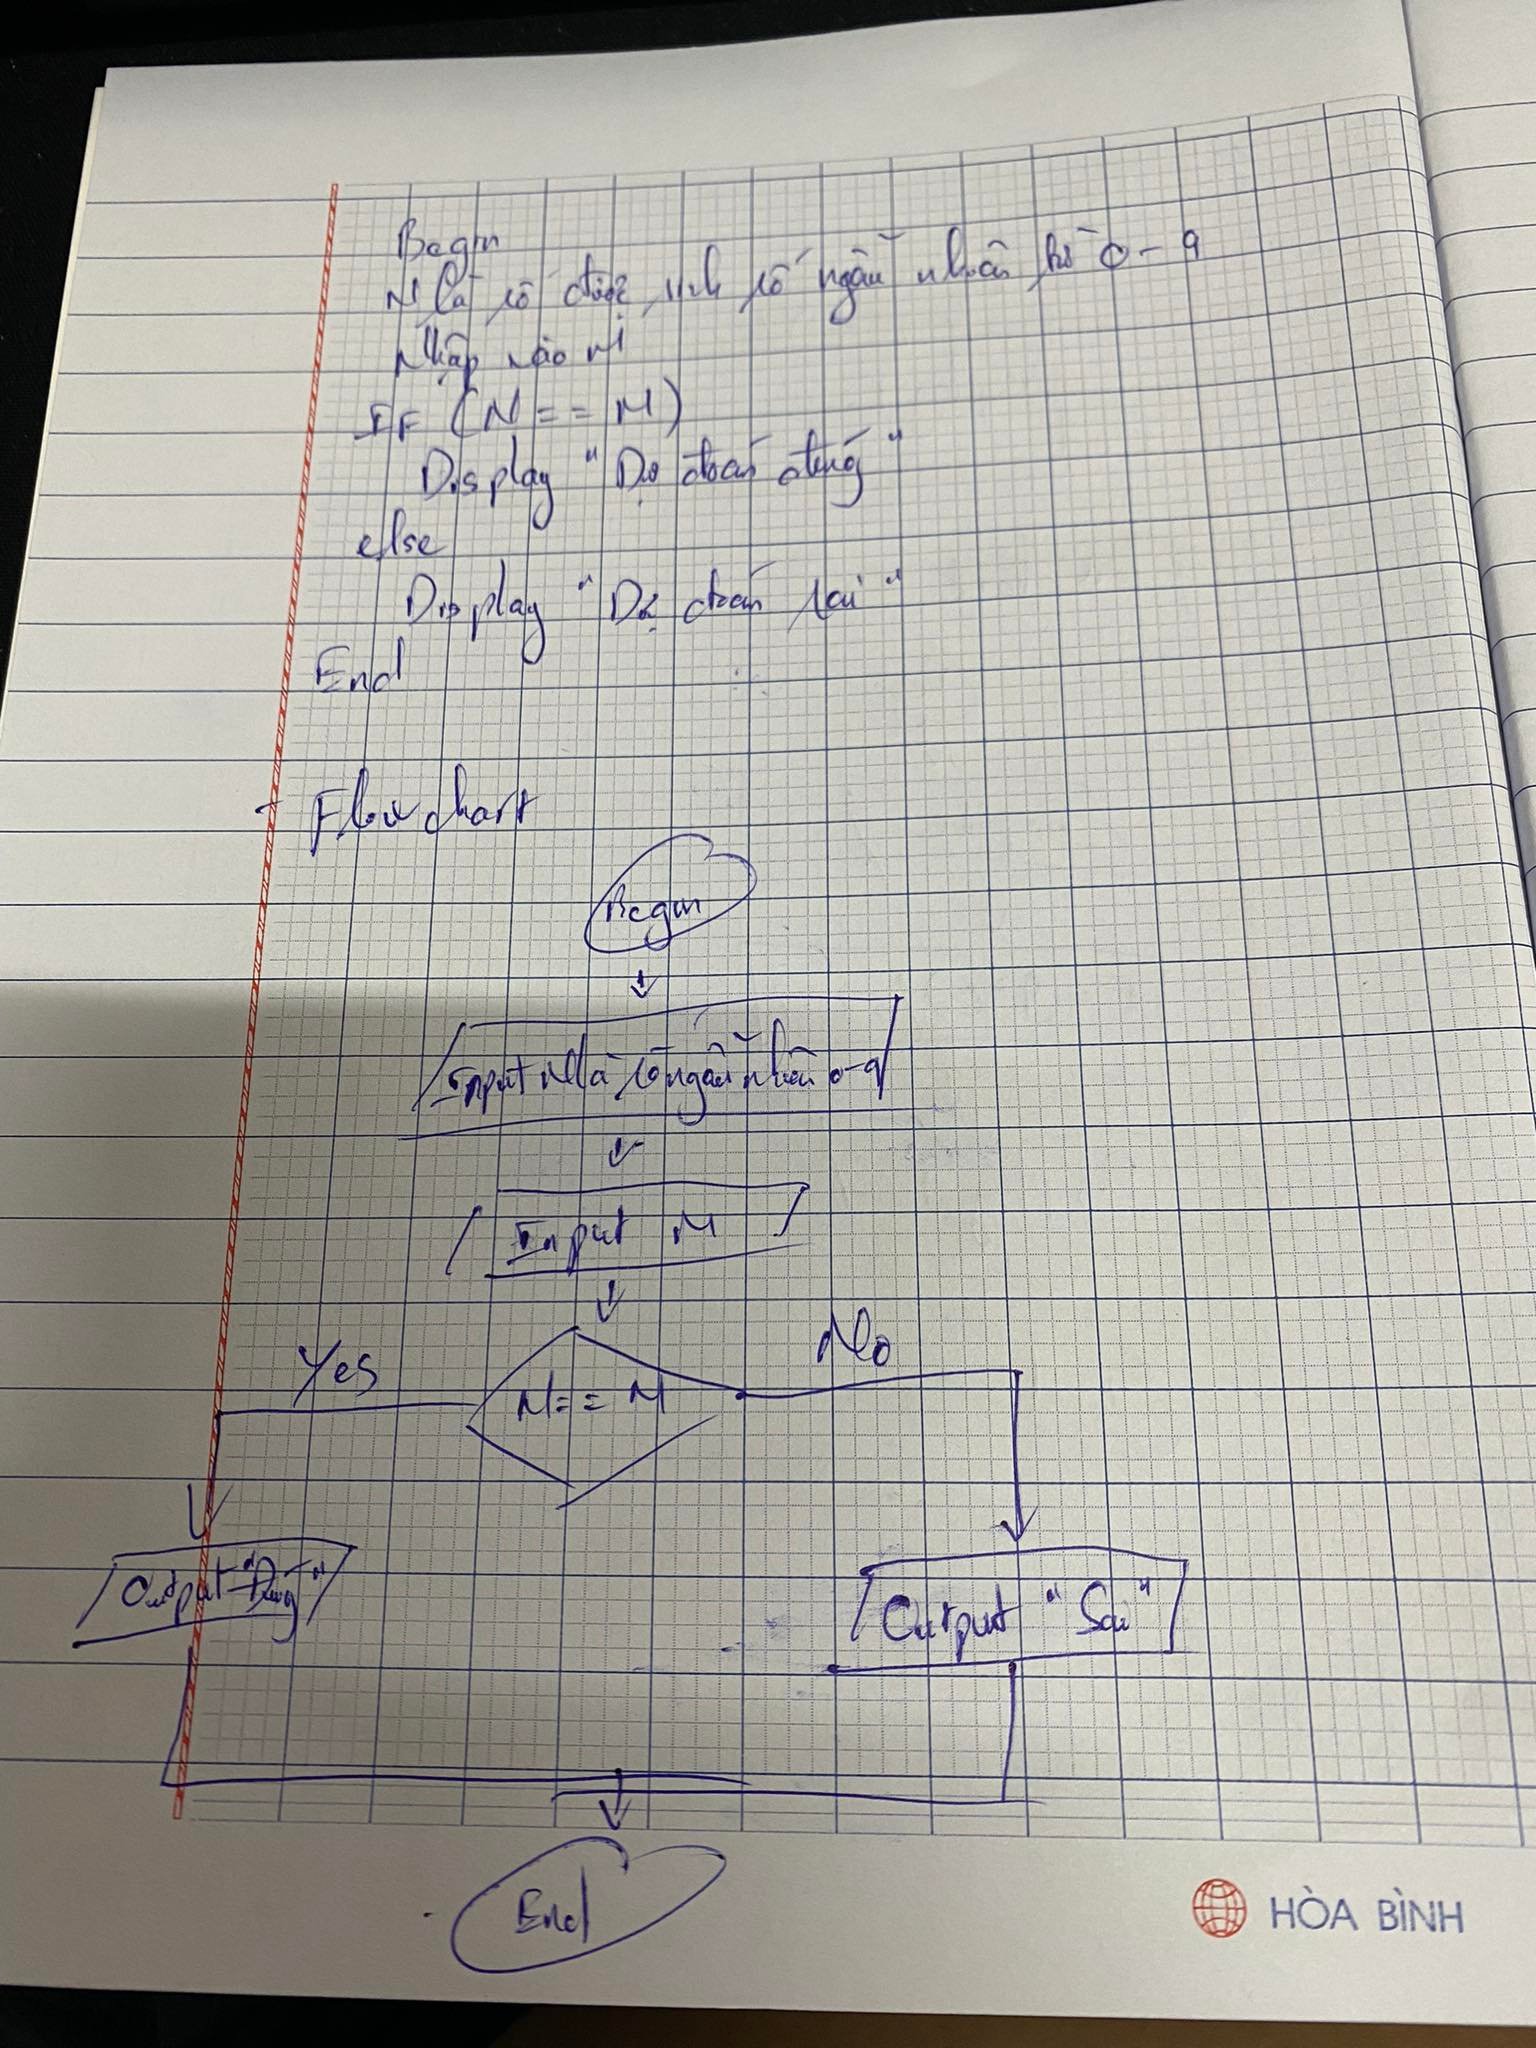 Begin
N là số được sinh số ngẫu nhiên từ 0-9
Nhập vào M
IF (N == M)
Display "Dự đoán đúng"
else
Display "Dự đoán sai"
End
- Flowchart
Begin
Input N là số ngẫu nhiên 0-9
Input M
Yes
No
N == M
Output "Đúng"
Output "Sai"
End
HÒA BÌNH